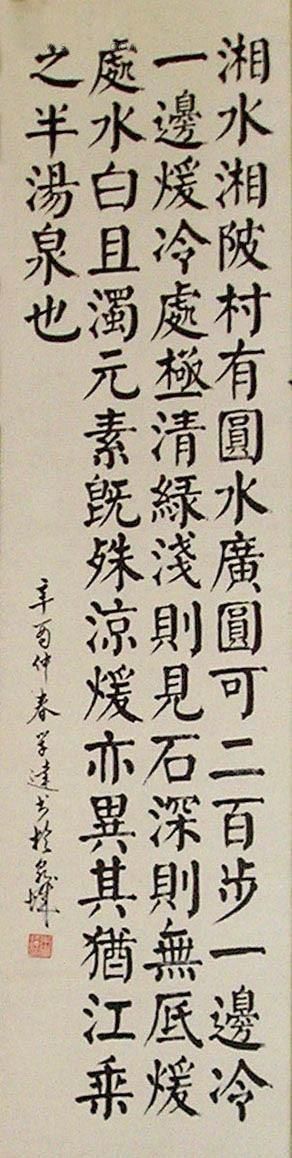 湘水湘陂村有圓水廣圓可二百步一邊冷
一邊煖冷處極清緑淺則見石深則無底煖
處水白且濁元素既殊涼煖亦異其猶江乘
之半湯泉也
辛酉仲春学達书於